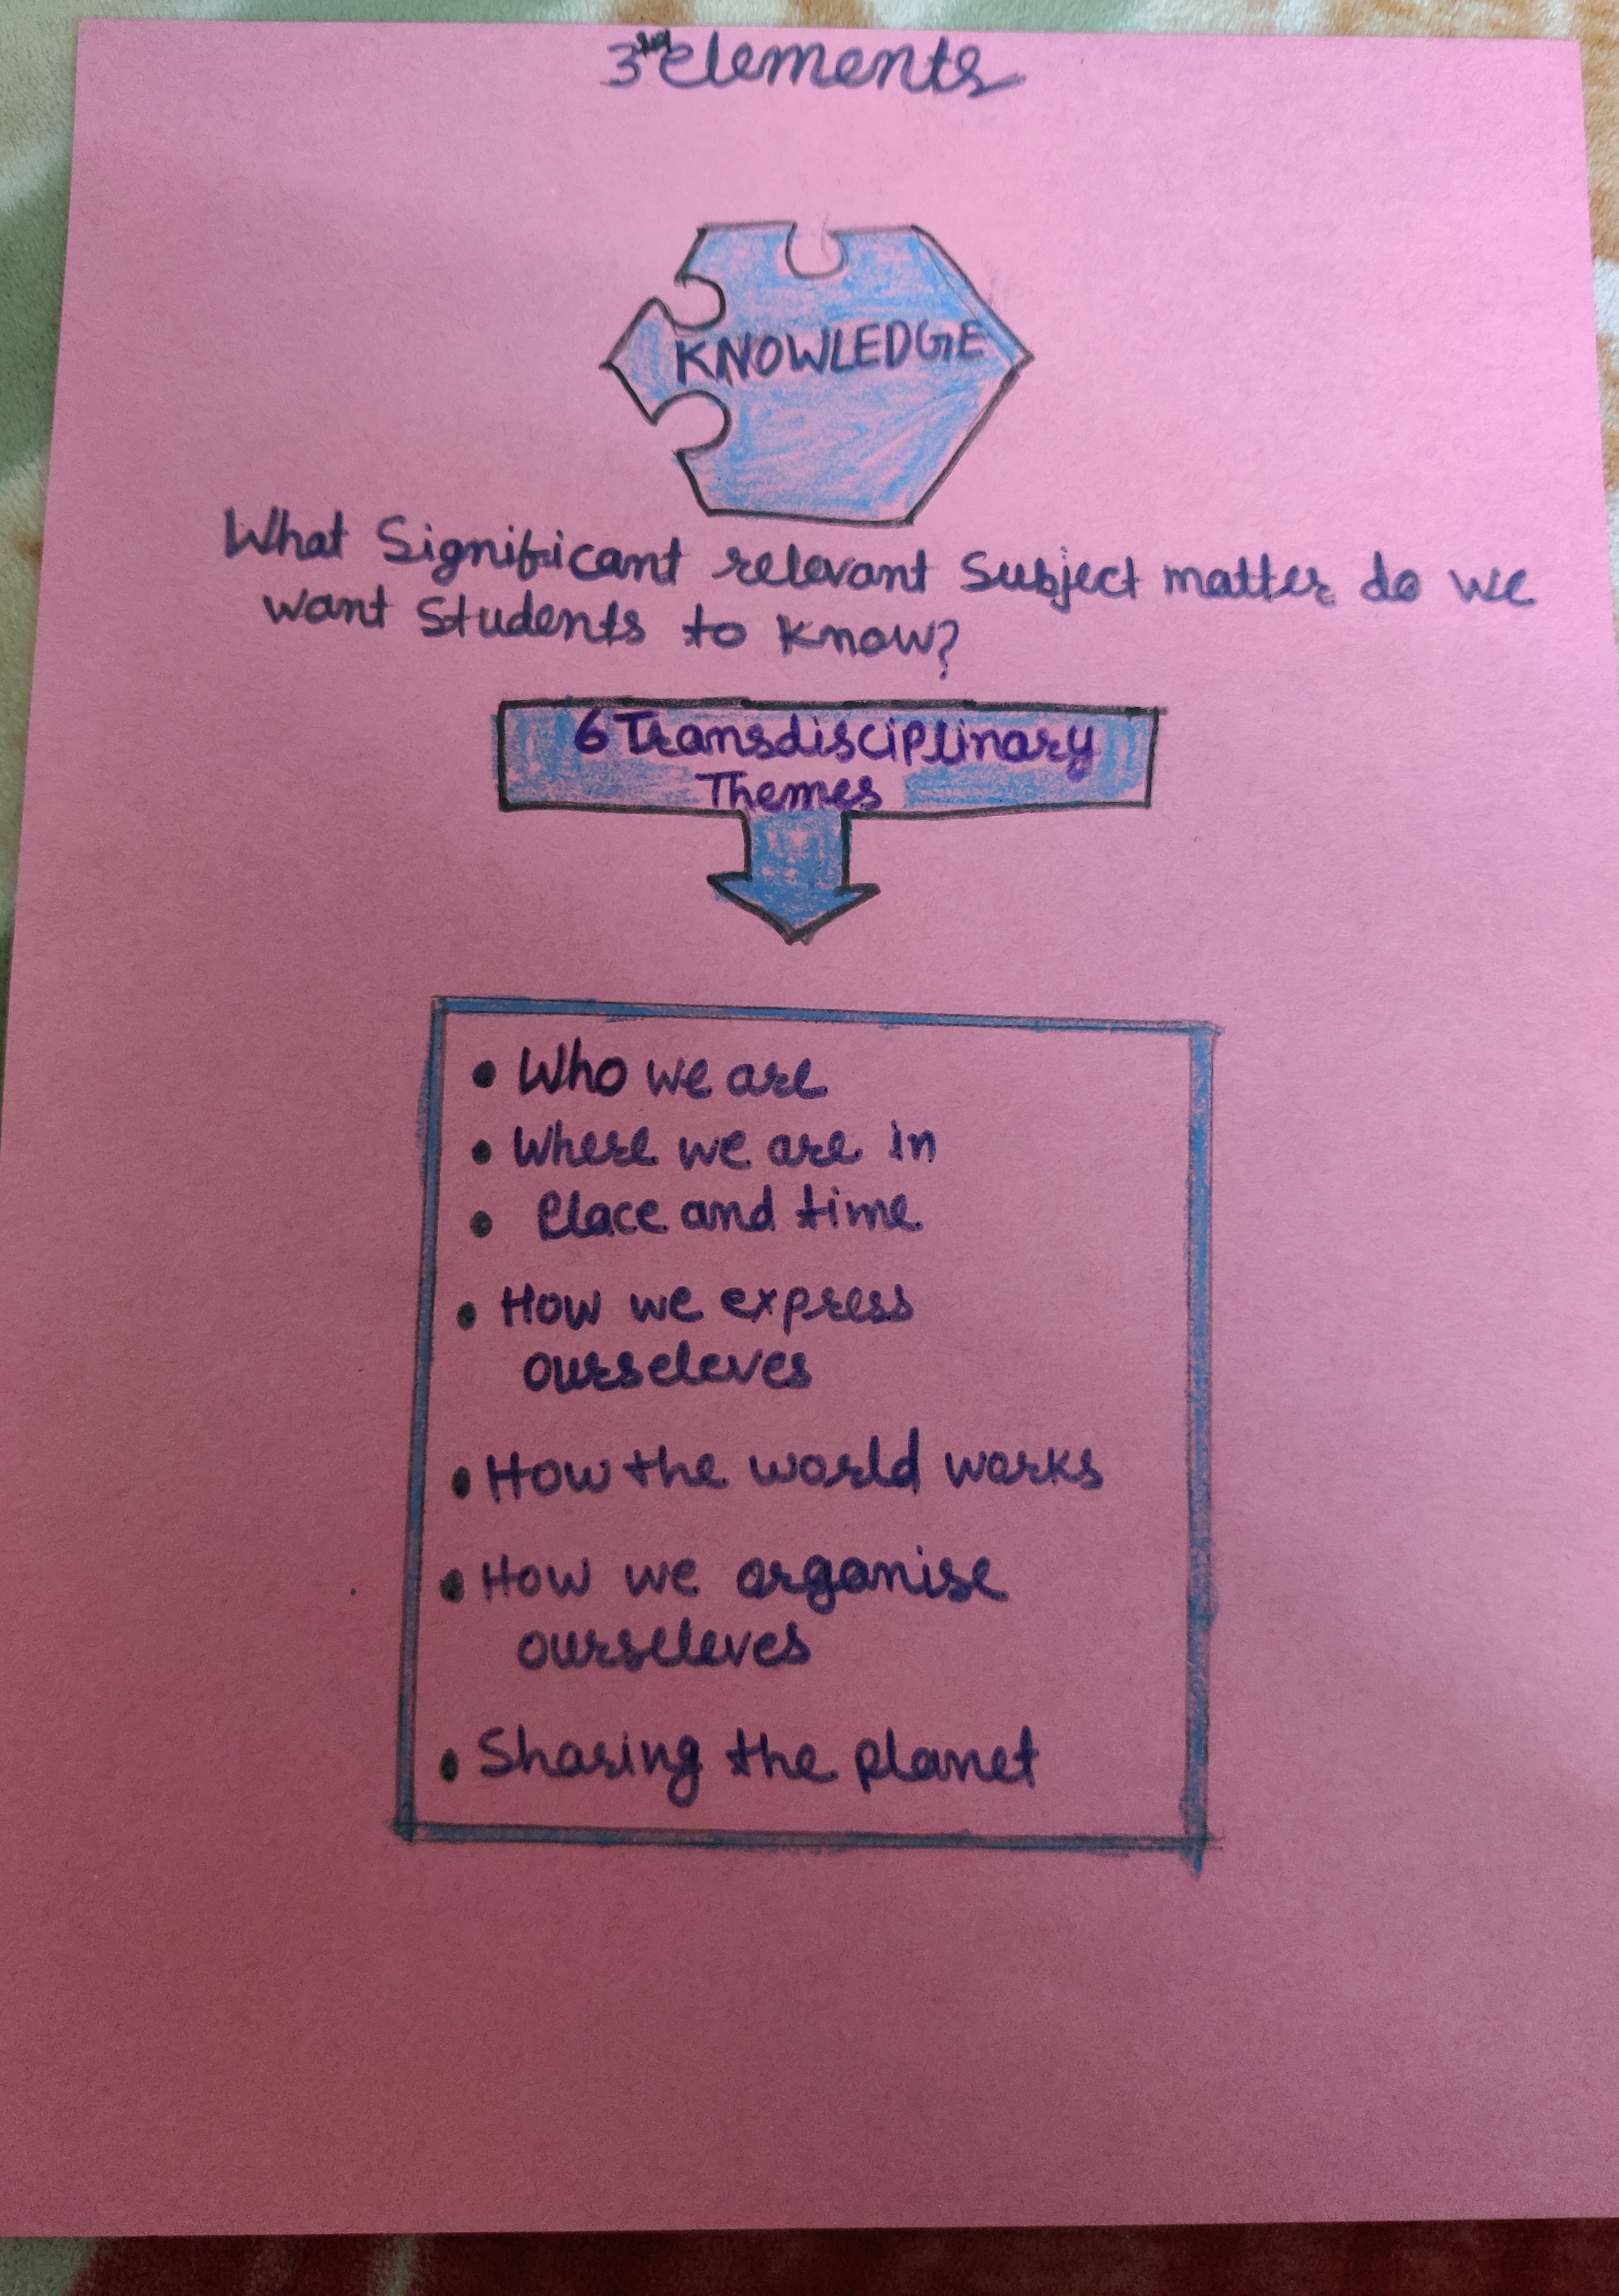 3rd elements
KNOWLEDGE
What Significant relevant Subject matter do we
want Students to know?
6 Transdisciplinary
Themes
• Who we are
• Where we are in
• Place and time
• How we express
ourseleves
• How the world works
• How we organise
ourseleves
• Sharing the planet